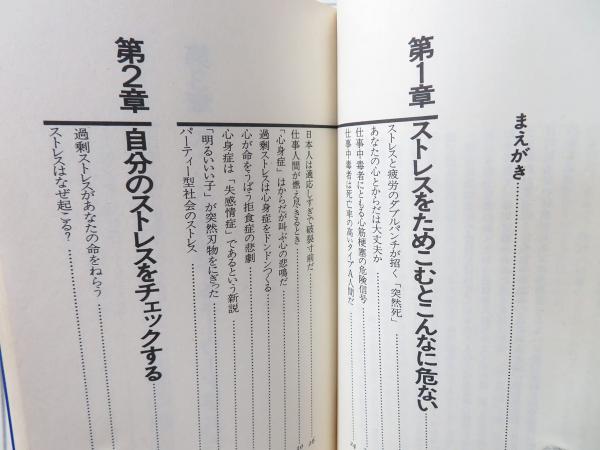 まえがき
第1章 ストレスをためこむとこんなに危ない
ストレスと疲労のダブルパンチが招く「突然死」
あなたの心とからだは大丈夫か
仕事中毒者にともる心筋梗塞の危険信号
仕事中毒者は死亡率の高いタイプA人間だ
日本人は適応しすぎや破裂寸前だ
仕事人間が燃え尽きるとき
「心身症」はからだが叫ぶ心の悲鳴だ
過剰ストレスは心身症をドンドンつくる
心が命をうばう拒食症の悲劇
心身症は「失感情症」であるという新説
「明るいいい子」が突然刃物をにぎった
パーティー型社会のストレス
第2章 自分のストレスをチェックする
過剰ストレスがあなたの命をねらう
ストレスはなぜ起こる?